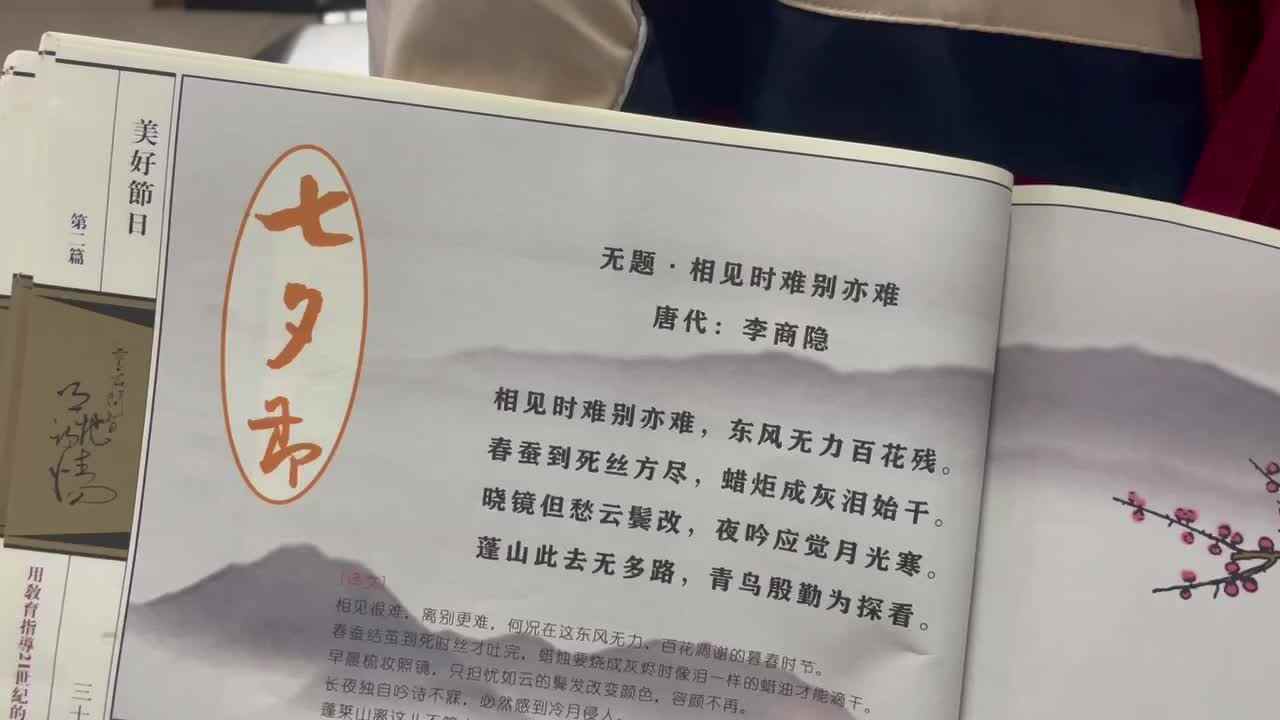 美好節日
第二篇
用教育指導21世紀的
三十
七夕节
无题·相见时难别亦难
唐代：李商隐
相见时难别亦难，东风无力百花残。
春蚕到死丝方尽，蜡炬成灰泪始干。
晓镜但愁云鬓改，夜吟应觉月光寒。
蓬山此去无多路，青鸟殷勤为探看。
[译文]
相见很难，离别更难，何况在这东风无力、百花凋谢的暮春时节。
春蚕结茧到死时丝才吐完，蜡烛要烧成灰烬时像泪一样的蜡油才能滴干。
早晨梳妆照镜，只担忧如云的鬓发改变颜色，容颜不再。
长夜独自吟诗不寐，必然感到冷月侵人。
蓬莱山离这儿不